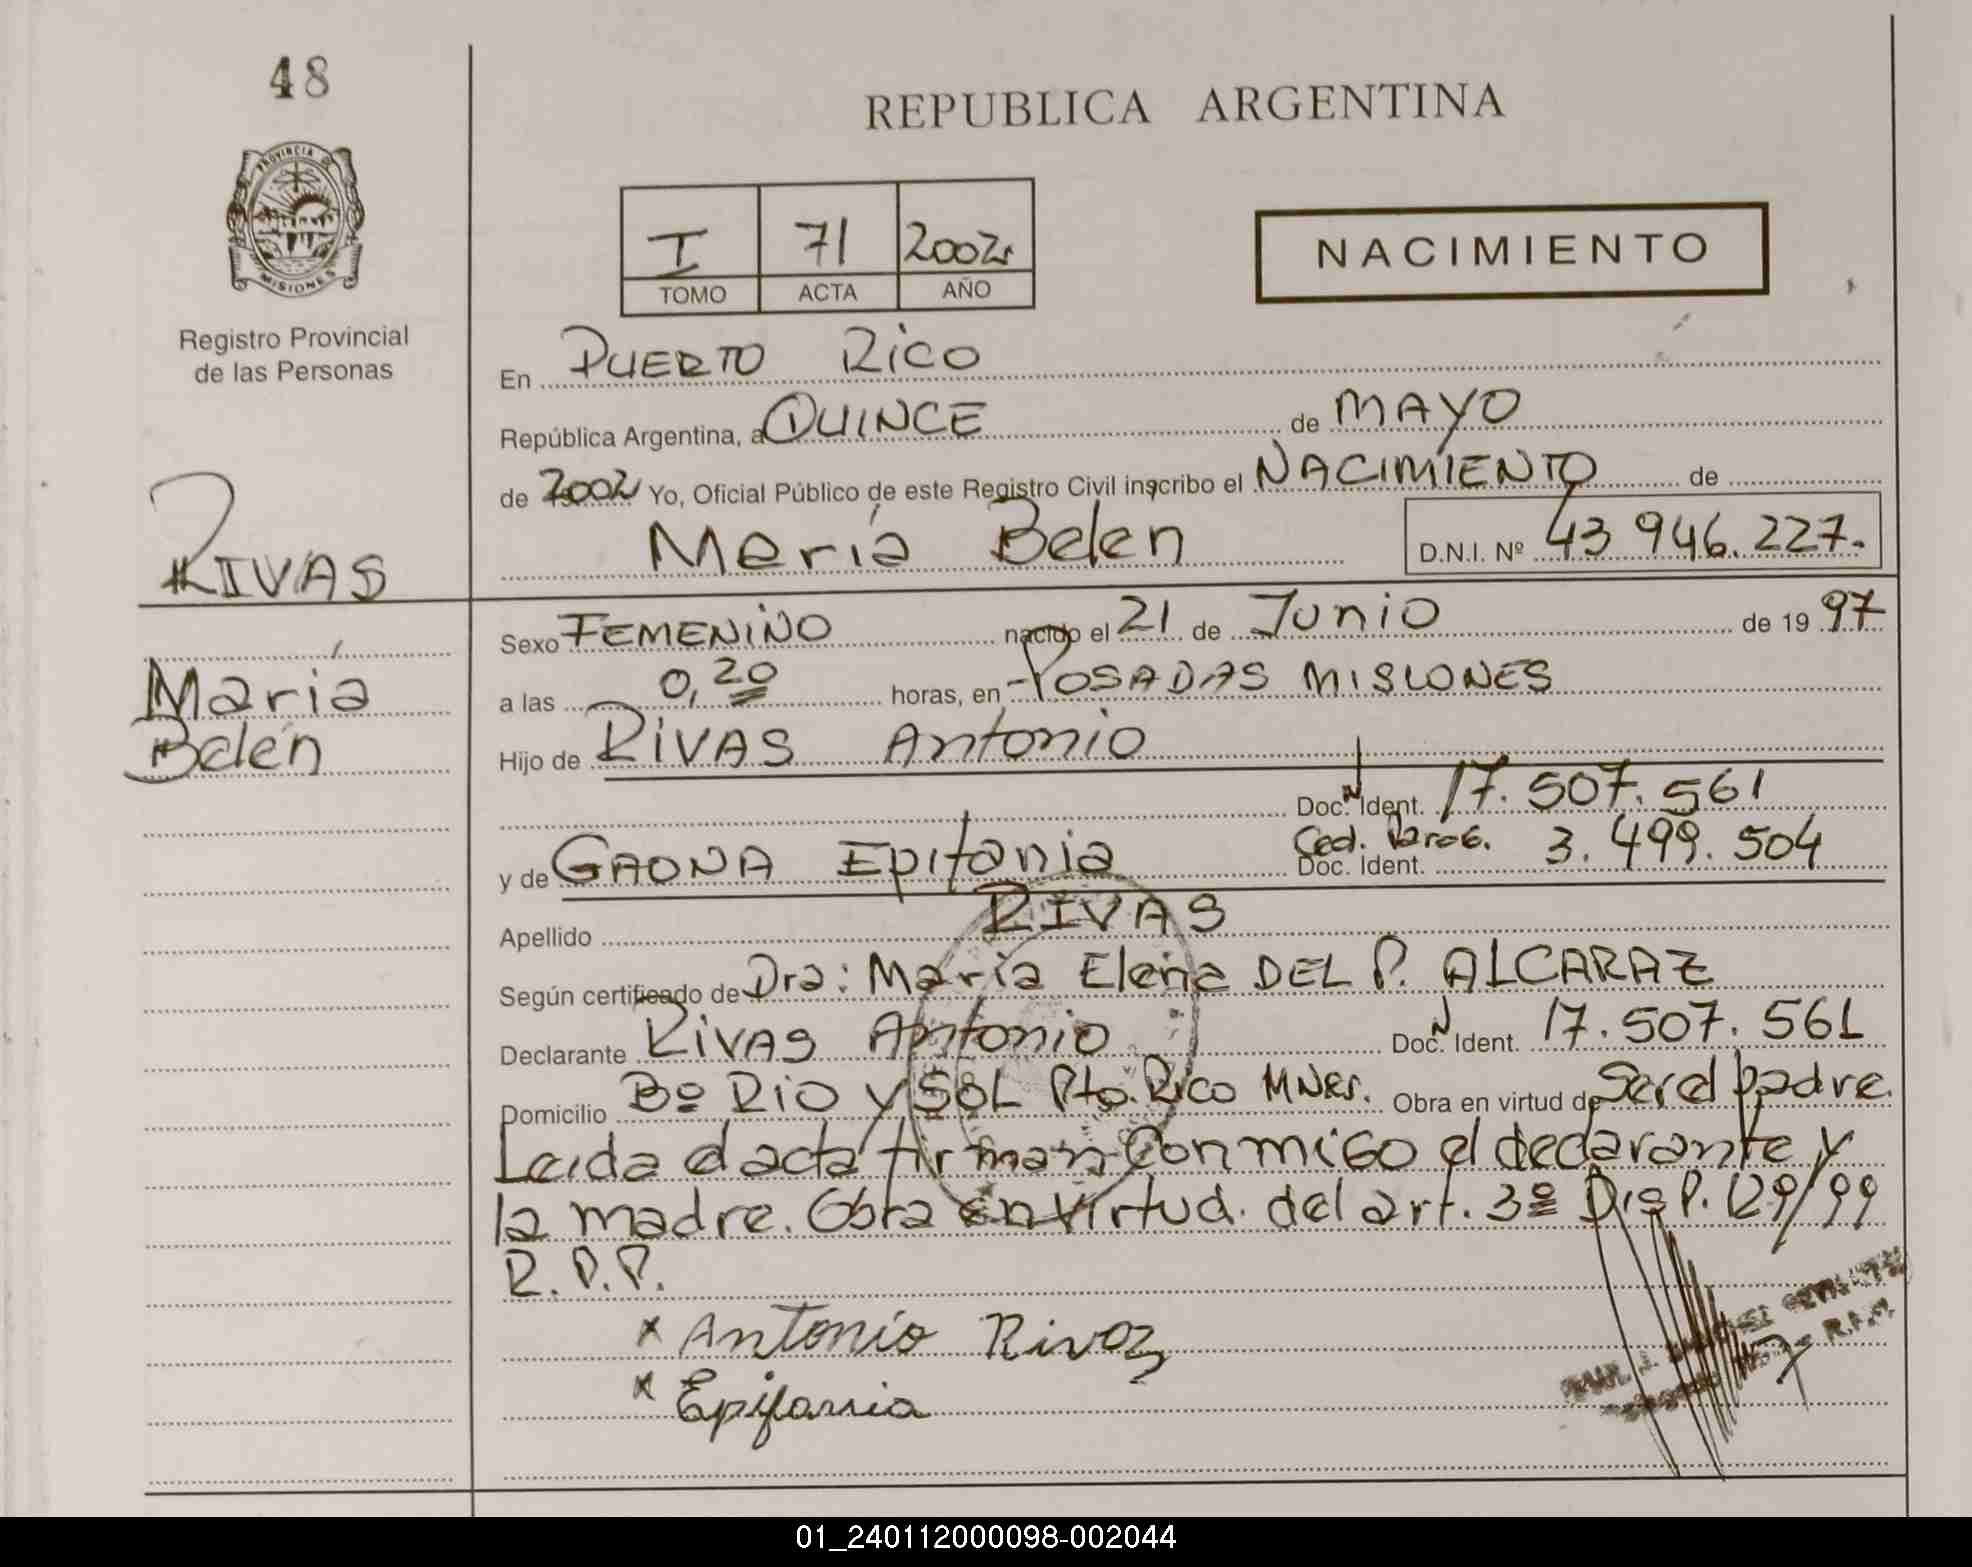 48
REPUBLICA ARGENTINA
PROVINCIA DE
MISIONES
Registro Provincial
de las Personas
I 71 2002
TOMO ACTA AÑO
NACIMIENTO
En PUERTO RICO
República Argentina, a QUINCE de MAYO
de 2002 Yo, Oficial Público de este Registro Civil inscribo el NACIMIENTO de
María Belen D.N.I. Nº 43 946.227.
RIVAS
María
Belén
Sexo FEMENINO nacido el 21 de Junio de 19 97
a las 0,20 horas, en POSADAS MISIONES
Hijo de RIVAS Antonio
Doc. N Ident. 17.507.561
y de GAONA Epifania Ced. Parag. Doc. Ident. 3.499.504
Apellido RIVAS
Según certificado de Dra: María Elena DEL P. ALCARAZ
Declarante RIVAS Antonio Doc. N Ident. 17.507.561
Domicilio Bº RIO y SOL Pto. Rico MNES. Obra en virtud de Ser el padre.
Leida el acta firman conmigo el declarante y
la madre. Obra en virtud. del art. 3º DISP. 129/99
R.P.P.
x Antonio Rivas
x Epifania
R.P.P.
01_240112000098-002044